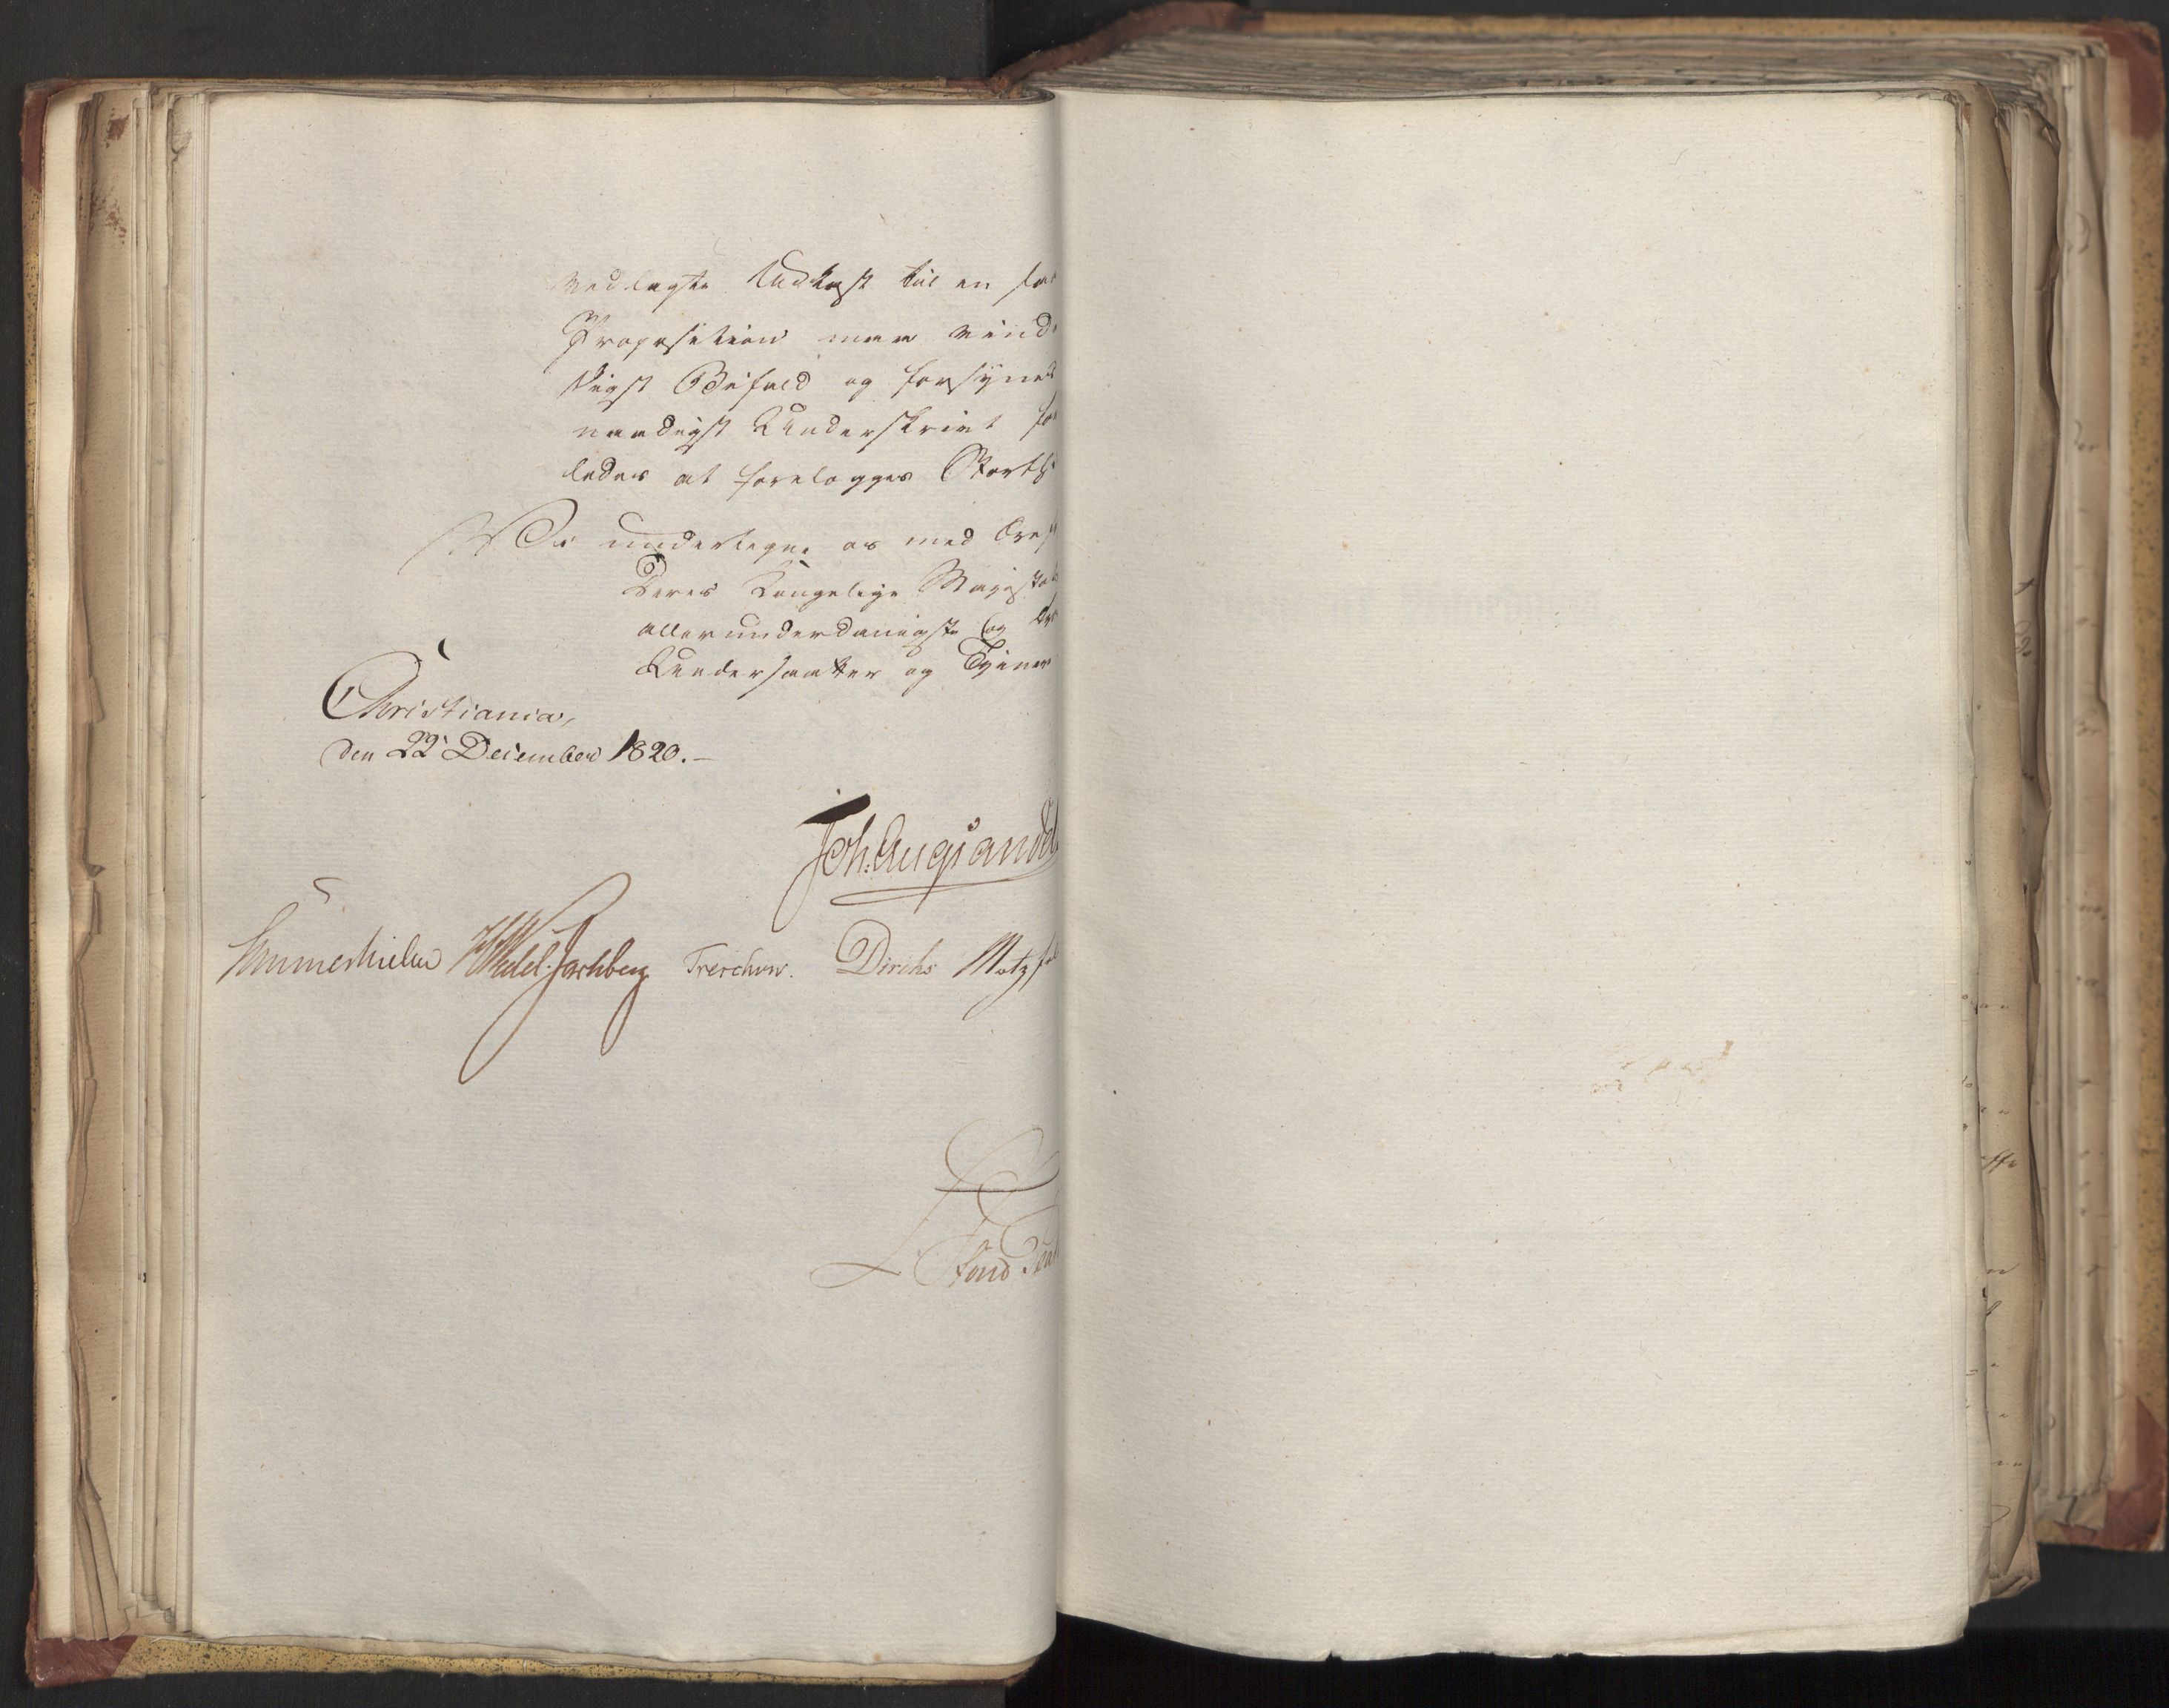 vedlagte Udkast til en saa
Proposition maa vind
digst Bifald og forsynet
naadigst Underskrivt
ledes at forelægges Storth
Vi undertegne os med
Deres Kongelige Majestæ
allerunderdanigste og
Undersaatter og Tjener
Christiania,
den 22 December 1820.-
Joh: Aug: Sandel
Sommerhielm HWedel-Jarlsberg Treschow. Diriks Motzfel